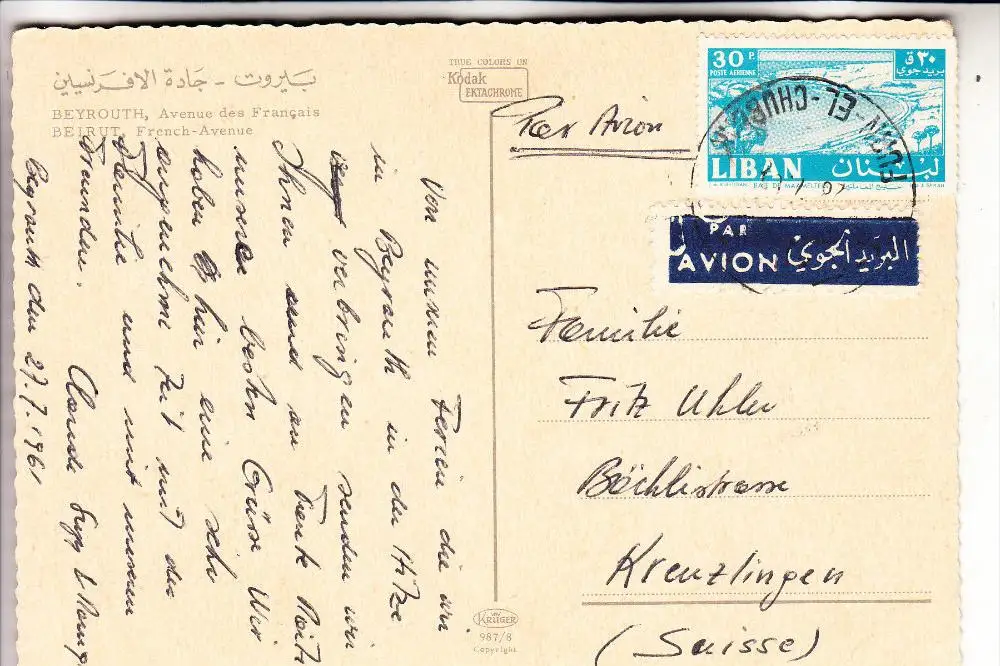 بيروت - جادة الافرنسيين
BEYROUTH, Avenue des Français
BEIRUT, French-Avenue
TRUE COLORS ON
Kodak
EKTACHROME
Par Avion
30 P.
POSTE AERIENNE
٣٠ ق
بريد جوي
LIBAN لبنان
FURN-EL-CHUBB
PAR
AVION البريد الجوي
Von unseren Ferien die wir
in Beyrouth in der Hitze
verbringen senden wir
Ihnen und an Tante
unsere besten Grüsse. Wir
haben hier eine sehr
angenehme Zeit mit der
Familie und mit unseren
Freunden.
Claude
Beyrouth den 27.7.1961
Familie
Fritz Uhler
Bächlistrasse
Kreuzlingen
(Suisse)
KRÜGER
987/8
Copyright